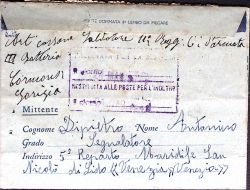 PARTE GOMMATA E LEMBO DA PIEGARE
Art. cassone Salvatore 11° Regg. C. Armata
III Batteria
Cormons
Gorizia
RESTITUITA ALLE POSTE PER L'INOLTRO
Mittente
Cognome Dipietro Nome Antonino
Grado Segnalatore
Indirizzo 5° Reparto Maridife San
Nicolò di Lido (Venezia) Venezia-77